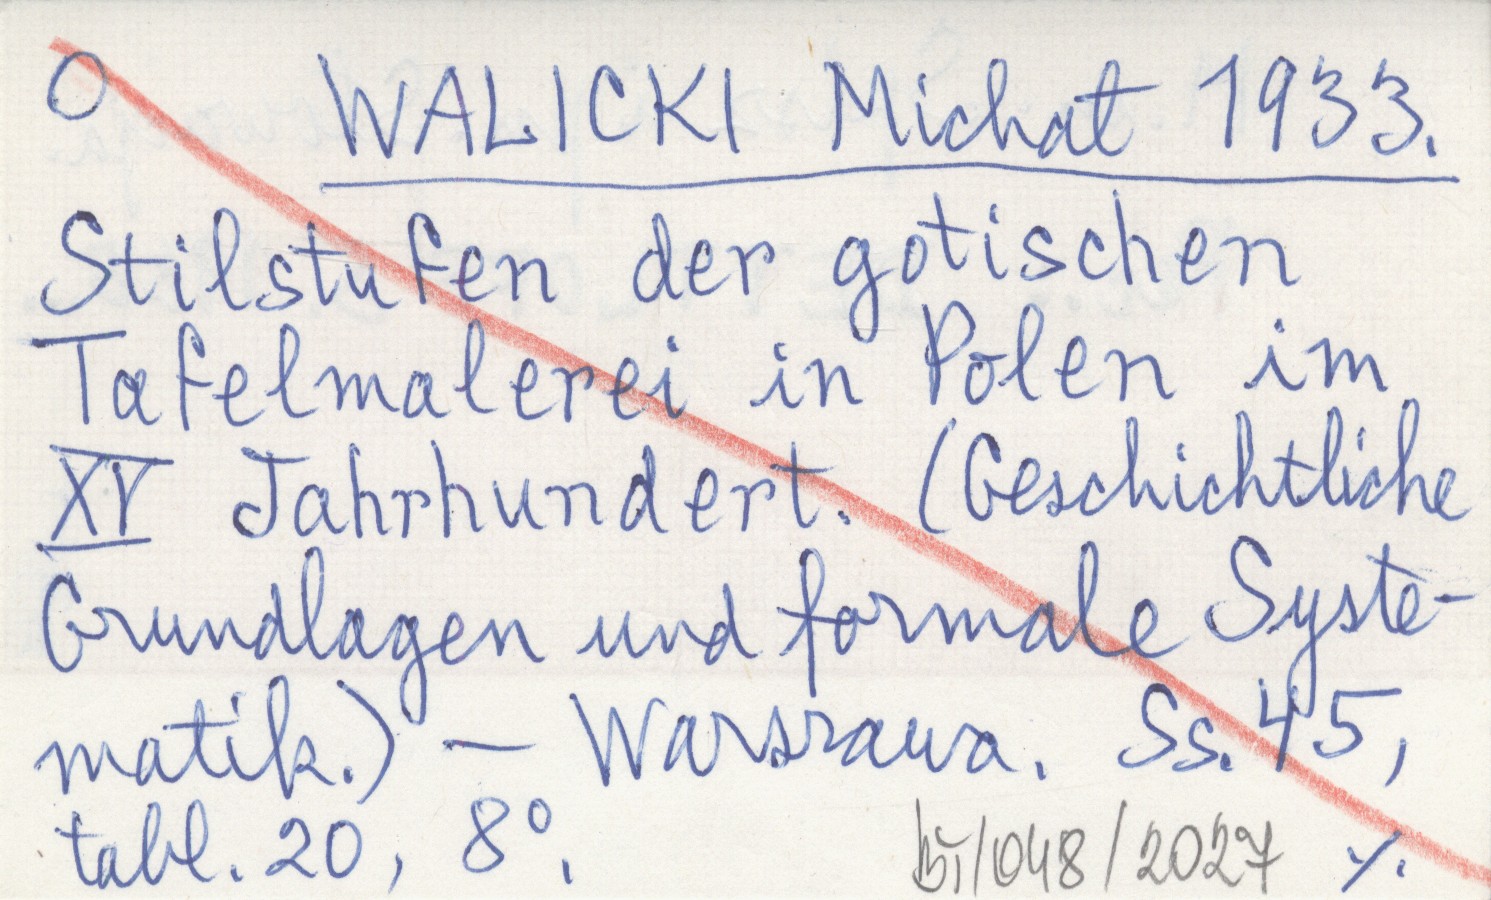 O WALICKI Michał 1933.
Stilstufen der gotischen
Tafelmalerei in Polen im
XV Jahrhundert. (Geschichtliche
Grundlagen und formale Syste-
matik.) — Warszawa. Ss. 45,
tabl. 20, 8°.
/048/2027 ./.